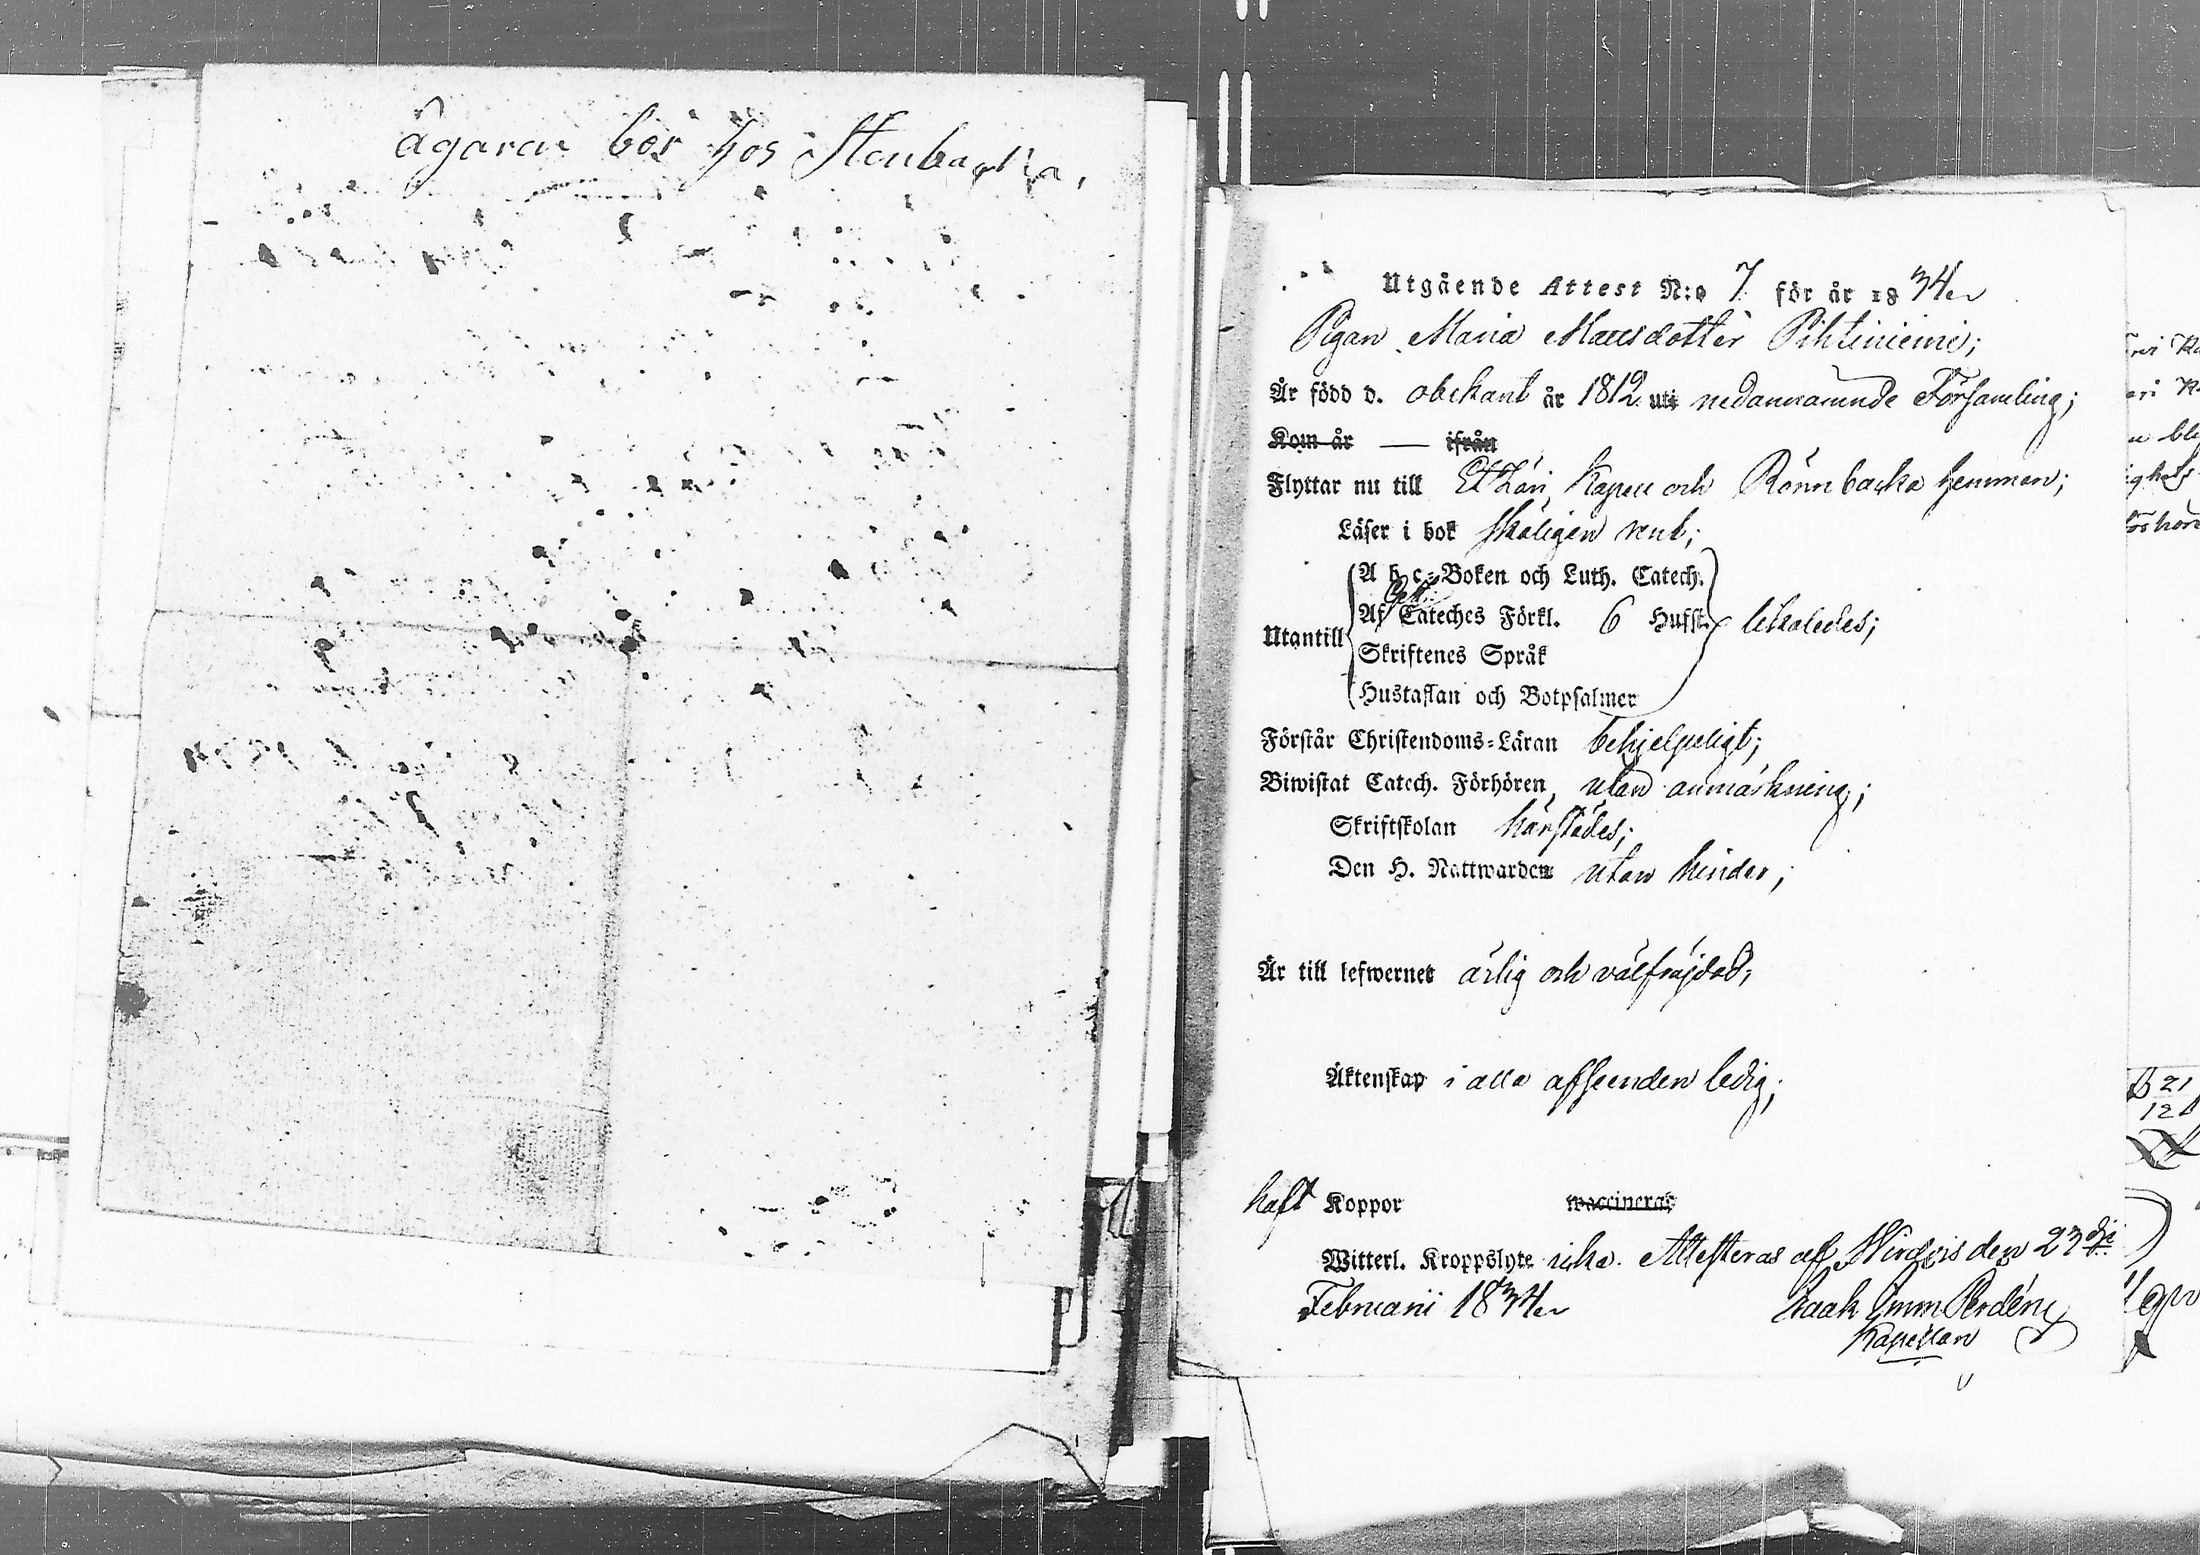 ägaren bor hos Stenbacka,
Utgående Attest N:o 7 för år 1834.
Pigan Maria Mattsdotter Pihtiniemi;
Är född d. obekant år 1812 uti nedannämnde Församling;
Kom år — ifrån
Flyttar nu till Etzäri Kapell och Rönnbacka hemman;
Läser i bok skäligen rent;
Utantill
A b c-Boken och Luth. Catech.
Af Cateches Förkl. 6 Hufst.
likaledes;
Skriftenes Språk
Hustaflan och Botpsalmer
Förstår Christendoms-Läran behjelpeligt;
Biwistat Catech. Förhören utan anmärkning;
Skriftskolan härstädes;
Den H. Nattwarden utan hinder;
Är till lefwernet ärlig och välfräjdad;
Äktenskap i alla afseenden ledig;
haft Koppor waccinerats
Witterl. Kroppslyte icke. Attesteras af Wirdois den 23dje
Februarii 1834.
Isaak Imm Perdén
Kapellan